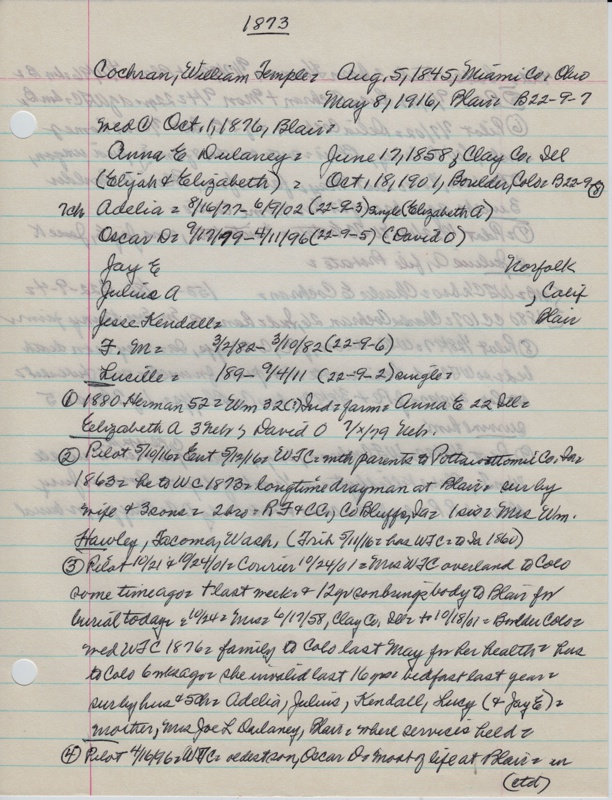 1873
Cochran, William Temple = Aug. 5, 1845, Miami Co. Ohio
May 8, 1916, Blair = B22-9-7
med ① Oct. 1, 1876, Blair =
Anna E Dulaney = June 17, 1858, Clay Co. Ill
(Elijah & Elizabeth) = Oct. 18, 1901, Boulder, Colo = B22-9-8
7ch Adelia = 8/16/77 - 6/9/02 (22-9-3) single (Elizabeth A)
Oscar D = 9/17/79 - 4/11/96 (22-9-5) (David O)
Jay E Norfolk
Julius A , Calif
Jesse Kendall = Blair
F. M = 3/2/82 - 3/10/82 (22-9-6)
Lucille = 189 - 9/4/11 (22-9-2) single =
① 1880 Herman 52 = Wm 32(?) Ind = farm = Anna E 22 Ill =
Elizabeth A 3 Neb, David O 7/x/79 Neb.
② Pilot 5/10/16 = Ent 5/12/16 = WTC = with parents to Pottawattomie Co, Ia =
1863 = he to WC 1873 = longtime drayman at Blair = sur by
wife & 3 sons = 2 bros = R F & CC, Co Bluffs, Ia = 1 sis = Mrs Wm.
Hawley, Tacoma, Wash. (Trib 5/11/16 = has WTC = to Ia 1860)
③ Pilot 10/21 & 10/24/01 = Courier 10/24/01 = Mrs WTC overland to Colo
some time ago = + last week = & 12 yr son brings body to Blair for
burial today = 10/24 = Mrs = 6/17/58, Clay Co. Ill = + 10/18/01 = Boulder Colo =
med WTC 1876 = family to Colo last May for her health = hus
to Colo 6 wks ago = she invalid last 16 yrs = bedfast last year =
sur by hus & 5ch = Adelia, Julius, Kendall, Lucy (& Jay E) =
mother, Mrs Joe L Dulaney, Blair = where services held =
④ Pilot 4/16/96 = WTC = oldest son, Oscar D = most of life at Blair = in
(ctd)